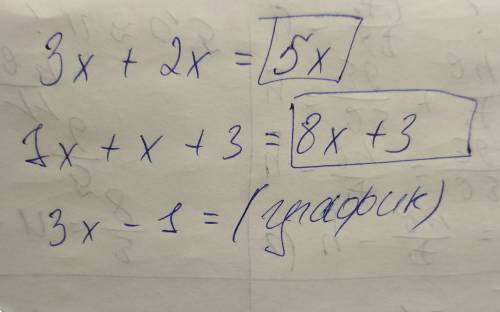 3x + 2x = 5x
7x + x + 3 = 8x + 3
3x - 1 = (график)